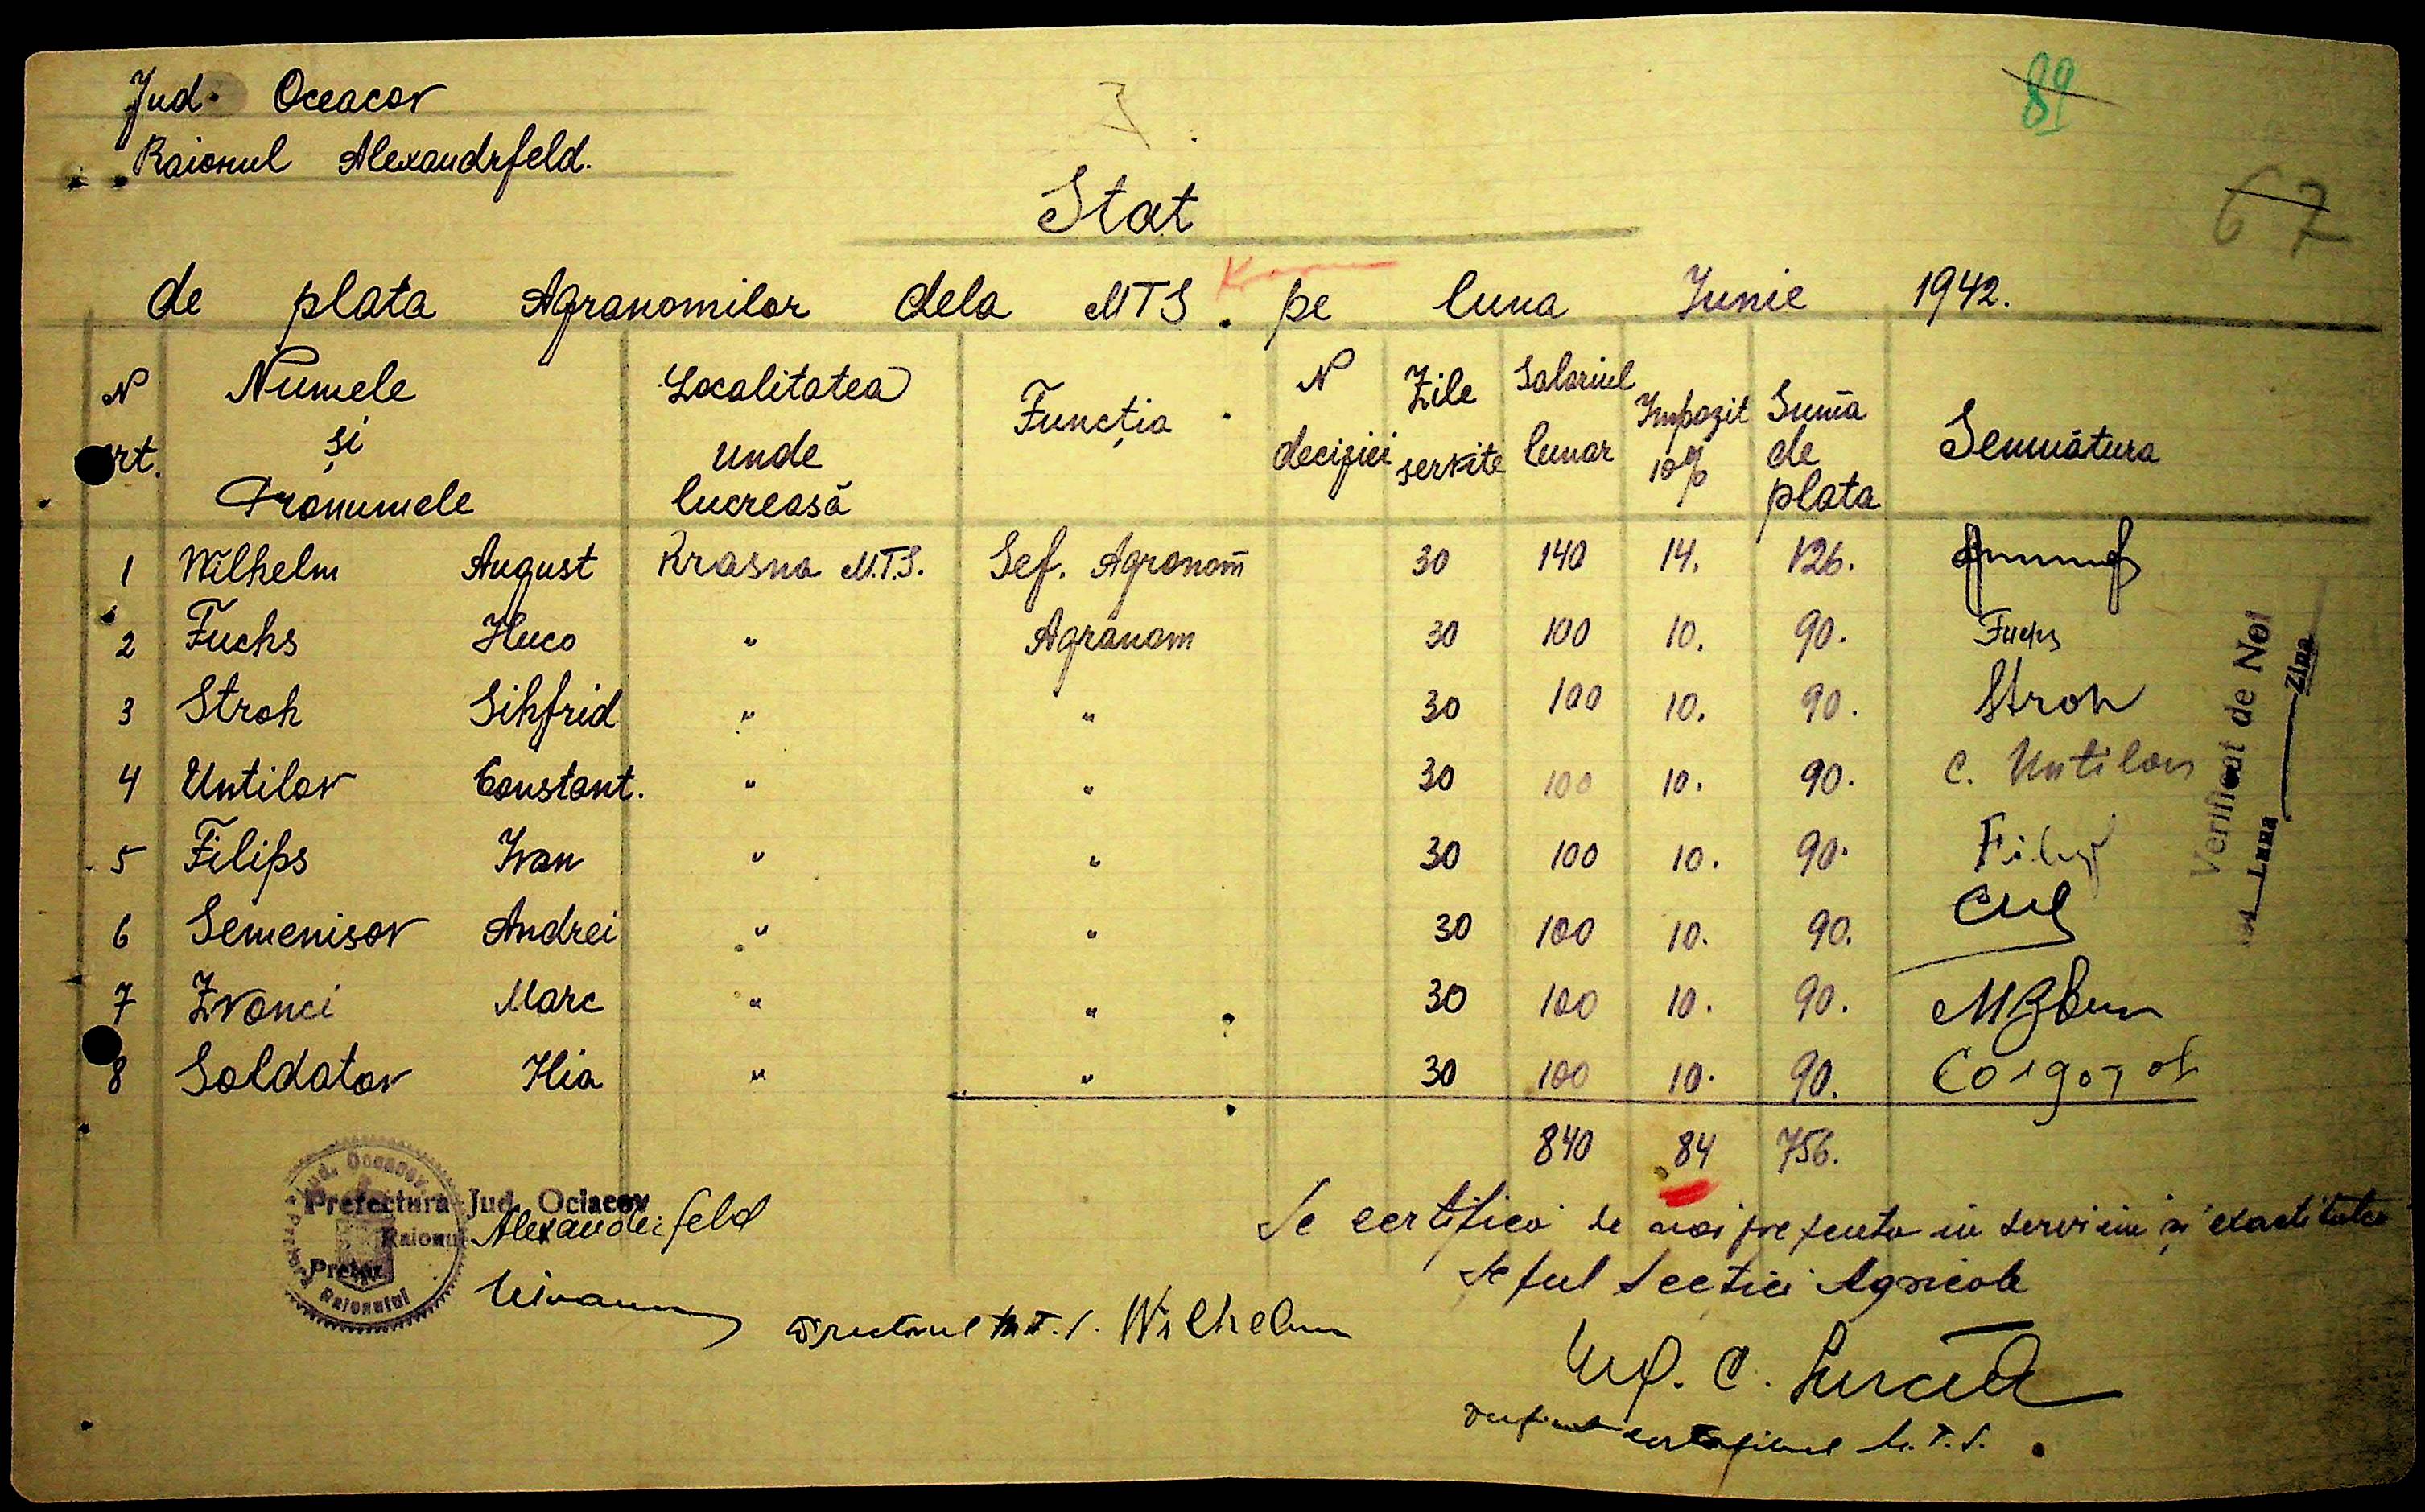 Jud. Oceacov
89
Raionul Alexandrfeld.
67
Stat
de plata Agranomilor dela MTS. pe luna Iunie 1942.
N rt. Numele și Pronumele Localitatea unde lucreasă Funcția N deciziei Zile servite Salariul lunar Impozit 10% Suma de plata Semnătura
1 Wilhelm August Krasna M.T.S. Sef. Agronom 30 140 14. 126.
2 Fuchs Huco " Agranom 30 100 10. 90. Fuchs
3 Stroh Sihfrid " " 30 100 10. 90. Stroh
4 Untilov Constant. " " 30 100 10. 90. C. Untilov
5 Filips Ivan " " 30 100 10. 90.
6 Semenisov Andrei " " 30 100 10. 90.
7 Zvonci Marc " " 30 100 10. 90.
8 Soldatov Ilia " " 30 100 10. 90.
840 84 756.
Verificat de Noi
Luna Ziua
Prefectura Jud. Ociacov
Raionul Alexanderfeld
Pretor
Jud. Oceacov
Raionului
Se certifica de noi prezenta in serviciu și exactitatea
Seful Sectiei Agricole
Directorul M.T.S. Wilhelm
C.
M.T.S.